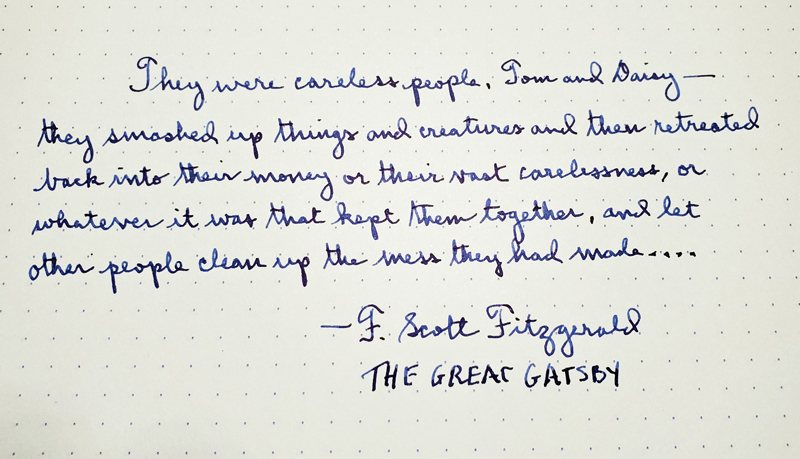 They were careless people, Tom and Daisy—
they smashed up things and creatures and then retreated
back into their money or their vast carelessness, or
whatever it was that kept them together, and let
other people clean up the mess they had made....
—F. Scott Fitzgerald
THE GREAT GATSBY